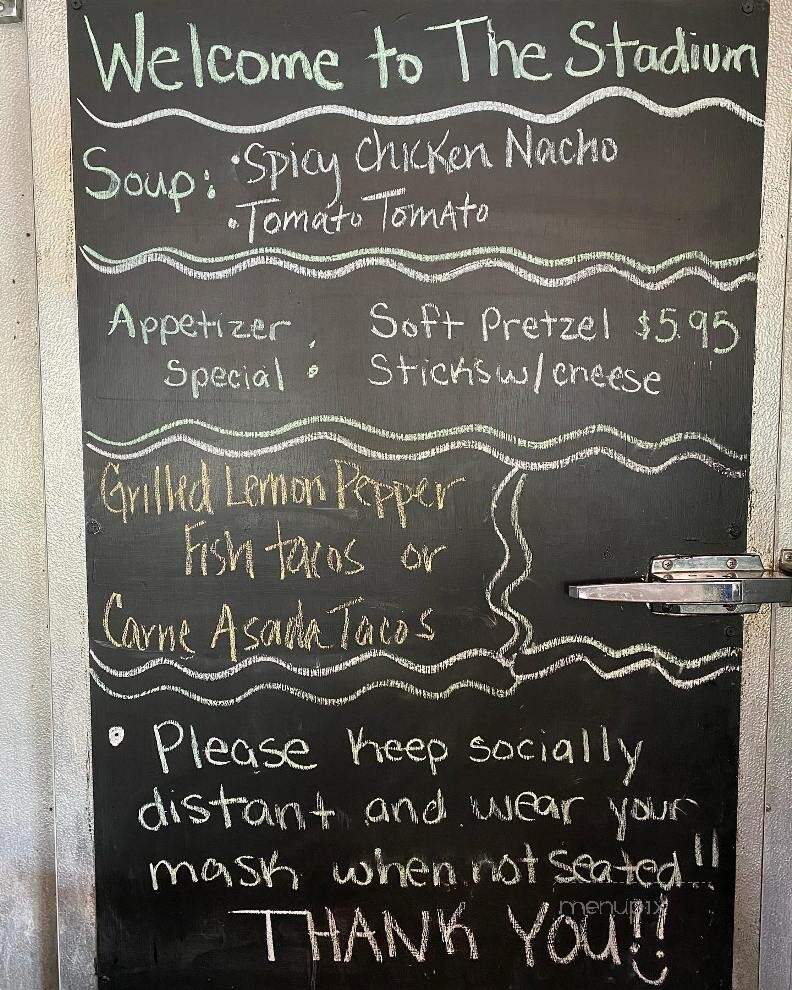 Welcome to The Stadium
Soup: •Spicy Chicken Nacho
•Tomato TomAto
Appetizer Soft Pretzel $5.95
Special : Sticks w/ cheese
Grilled Lemon Pepper
Fish tacos or
Carne Asada Tacos
• Please keep socially
distant and wear your
mask when not seated!!
menupix
THANK YOU!!